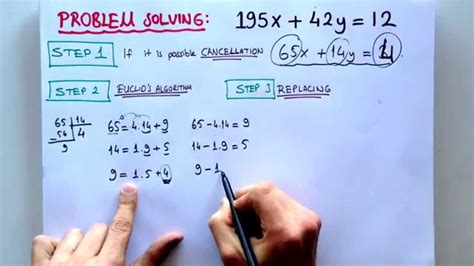 PROBLEM SOLVING: 195x + 42y = 12
STEP 1 If it is possible CANCELLATION 65x + 14y = 4
STEP 2 EUCLID'S ALGORITHM STEP 3 REPLACING
65 14
56 4
9
65 = 4.14 + 9
14 = 1.9 + 5
9 = 1.5 + 4
65 - 4.14 = 9
14 - 1.9 = 5
9 - 1